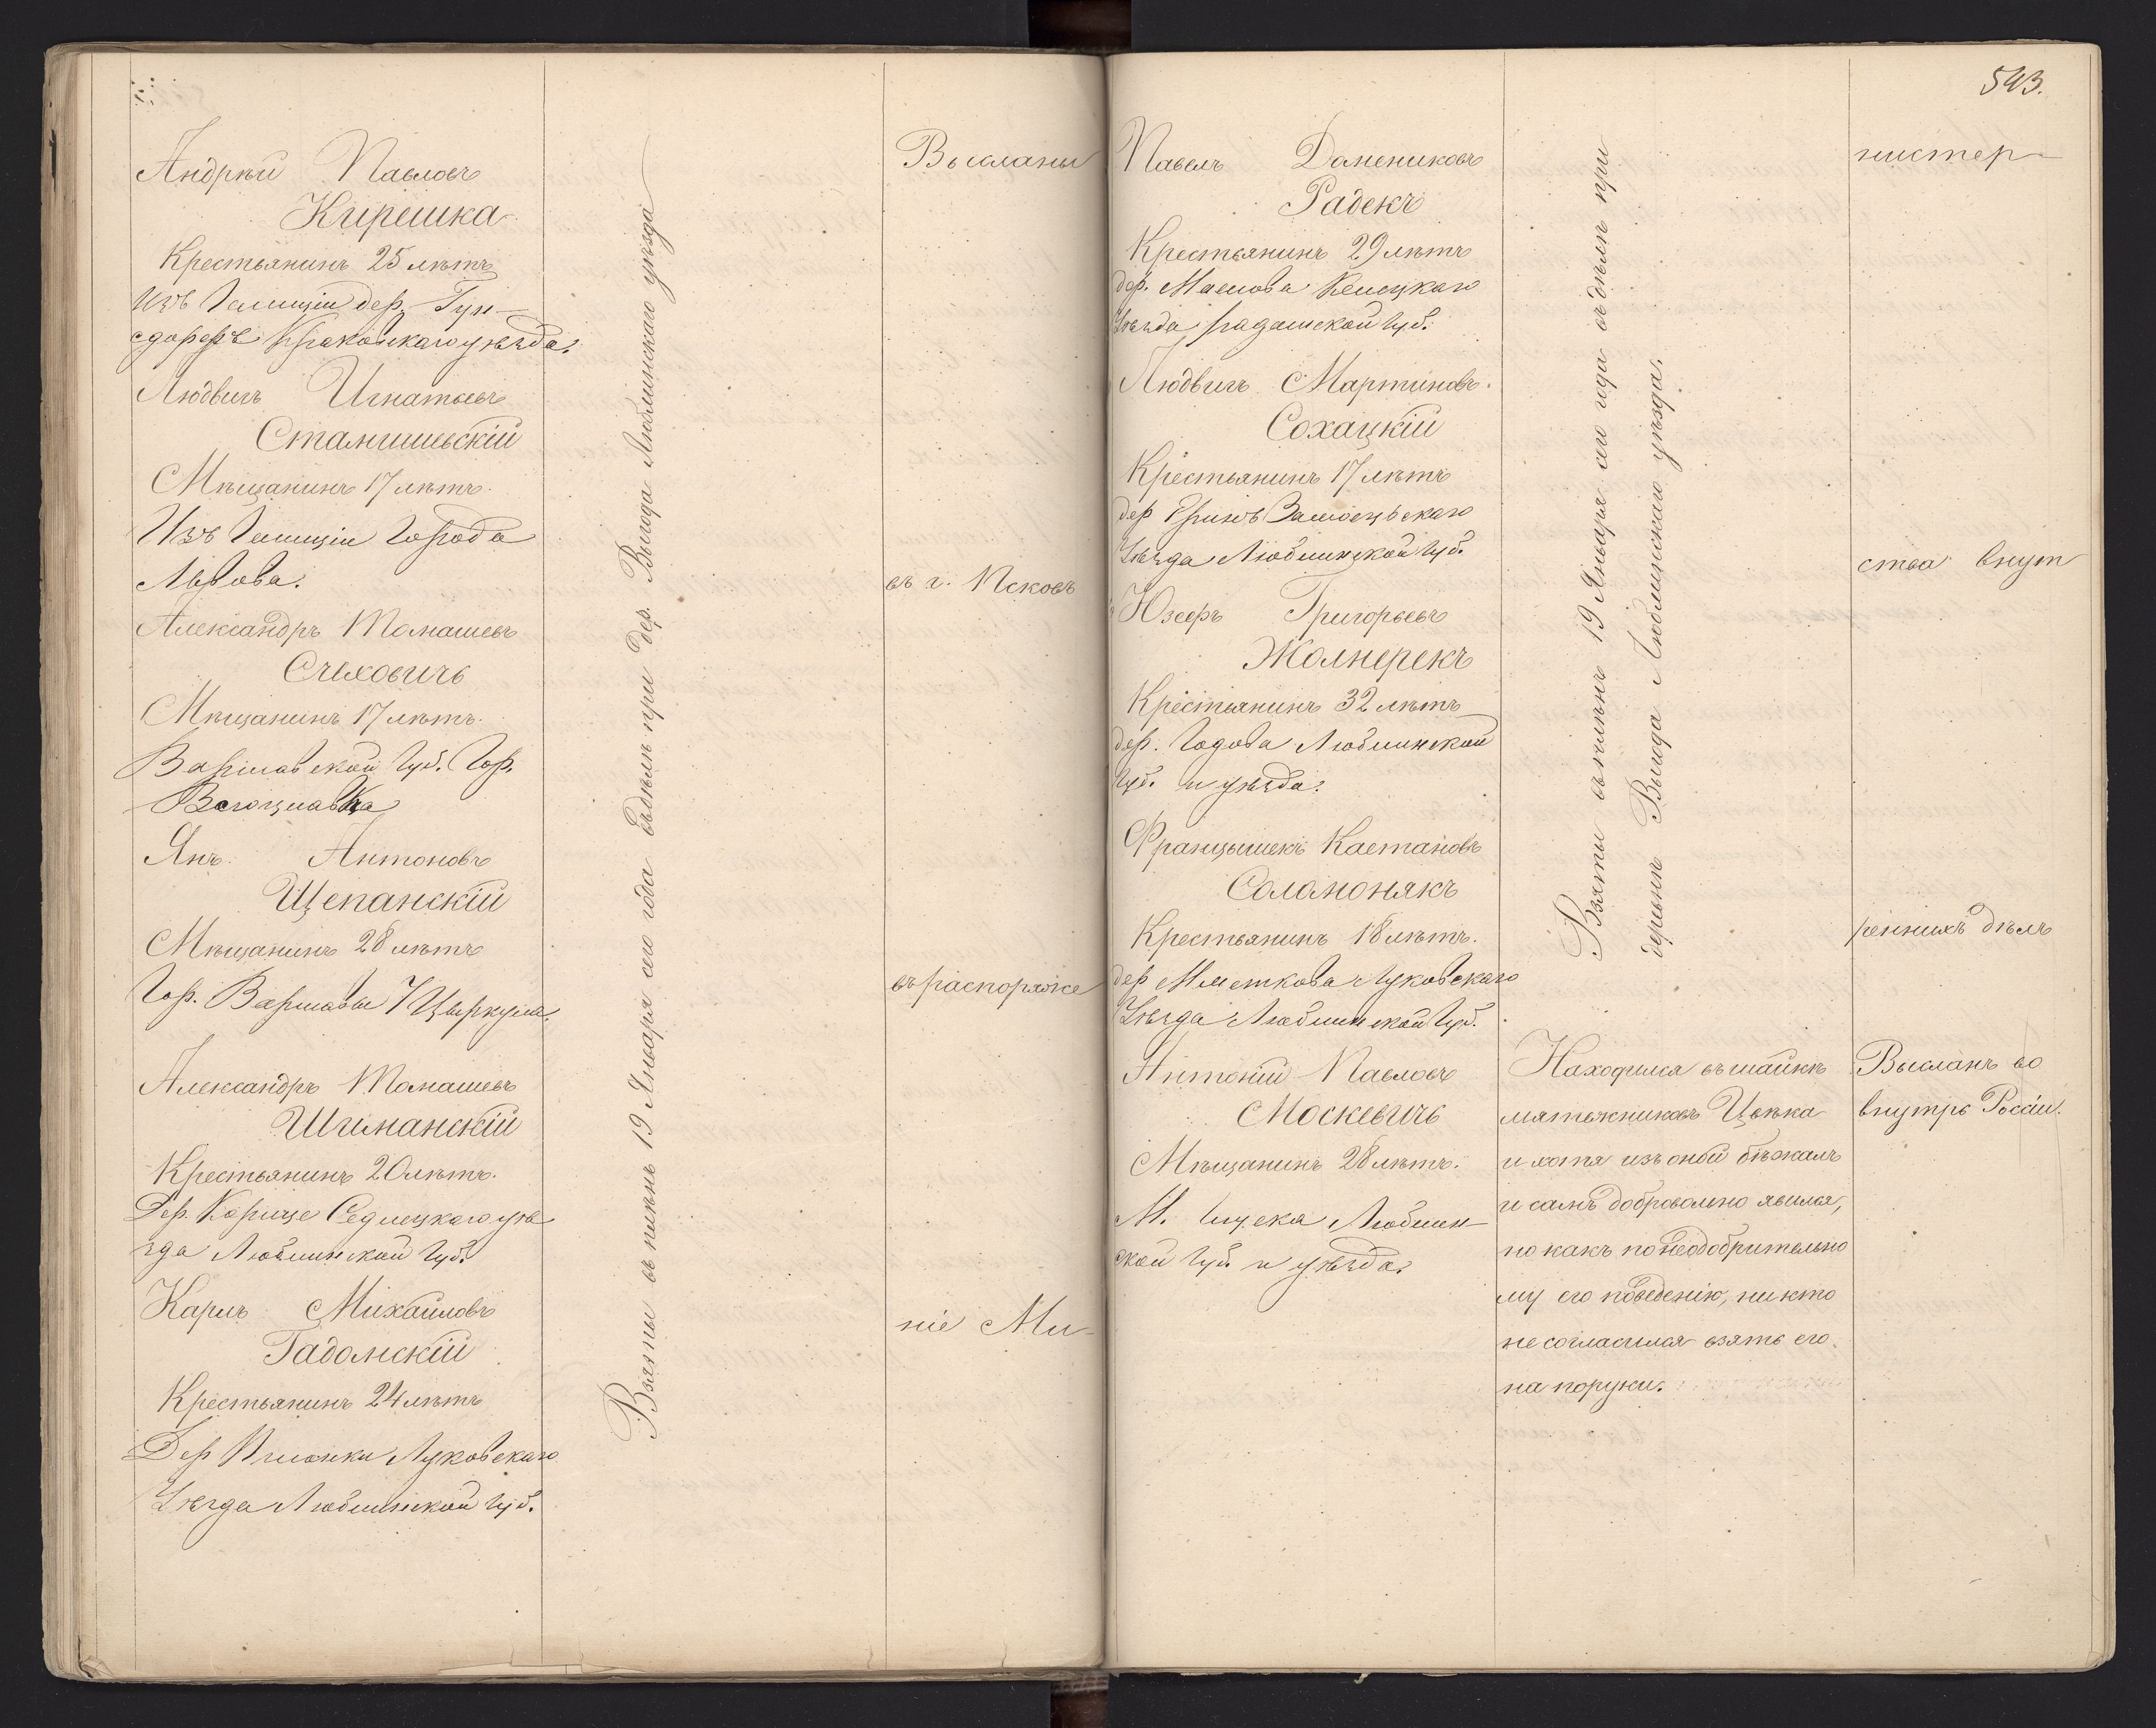 Андрѣй Павловъ
Кирешка
Крестьянинъ 25 лѣтъ
Изъ Галиціи дер. Гун-
сдорфъ Краковскаго уѣзда.
Людвигъ Игнатьевъ
Станишевскій
Мѣщанинъ 17 лѣтъ.
Изъ Галиціи Города
Львова.
Александръ Томашевъ
Счеховичъ
Мѣщанинъ 17 лѣтъ.
Варшавской Губ. Гор.
Янъ Антоновъ
Щепанскій
Мѣщанинъ 28 лѣтъ
Гор. Варшавы 7 Циркула.
Александръ Томашевъ
Шиманскій
Крестьянинъ 20 лѣтъ.
Дер. Корице Седлецкаго уѣ
зда Люблинской Губ.
Карлъ Михайловъ
Гадомскій
Крестьянинъ 24 лѣтъ
Дер. Луковскаго
Уѣзда Люблинской Губ.
Взяты въ плѣнъ 19 Января сего года въ дѣлѣ при дер. Выгода Люблинскаго уѣзда
Высланы
въ г. Псковъ
въ распоряже
ніе Ми-
543.
Павелъ Домениковъ
Радекъ
Крестьянинъ 29 лѣтъ
дер. Маслова Келецкаго
Уѣзда Радомской Губ.
Людвигъ Мартиновъ.
Сохацкій
Крестьянинъ 17 лѣтъ
дер. Замосцьскаго
Уѣзда Люблинской Губ.
Юзефъ Григорьевъ
Жолнерекъ
Крестьянинъ 32 лѣтъ
дер. Годова Люблинской
Губ. и уѣзда.
Францышекъ Каетановъ
Соломонякъ
Крестьянинъ 18 лѣтъ.
дер. Луковскаго
Уѣзда Люблинской Губ.
Антоній Павловъ
Москевичъ
Мѣщанинъ 28 лѣтъ.
М. Люблин-
ской Губ. и уѣзда.
Взяты въ плѣнъ 19 Января сего года въ дѣлѣ при
деревнѣ Выгода Люблинскаго уѣзда.
Находился въ шайкѣ
мятежниковъ Цвѣка
и хотя изъ оной бѣжалъ
и самъ добровольно явился,
но какъ по неодобрительно
му его поведенію, никто
не согласился взять его
на поруки.
нистер-
ства внут
реннихъ дѣлъ
Высланъ во
внутрь Россіи.